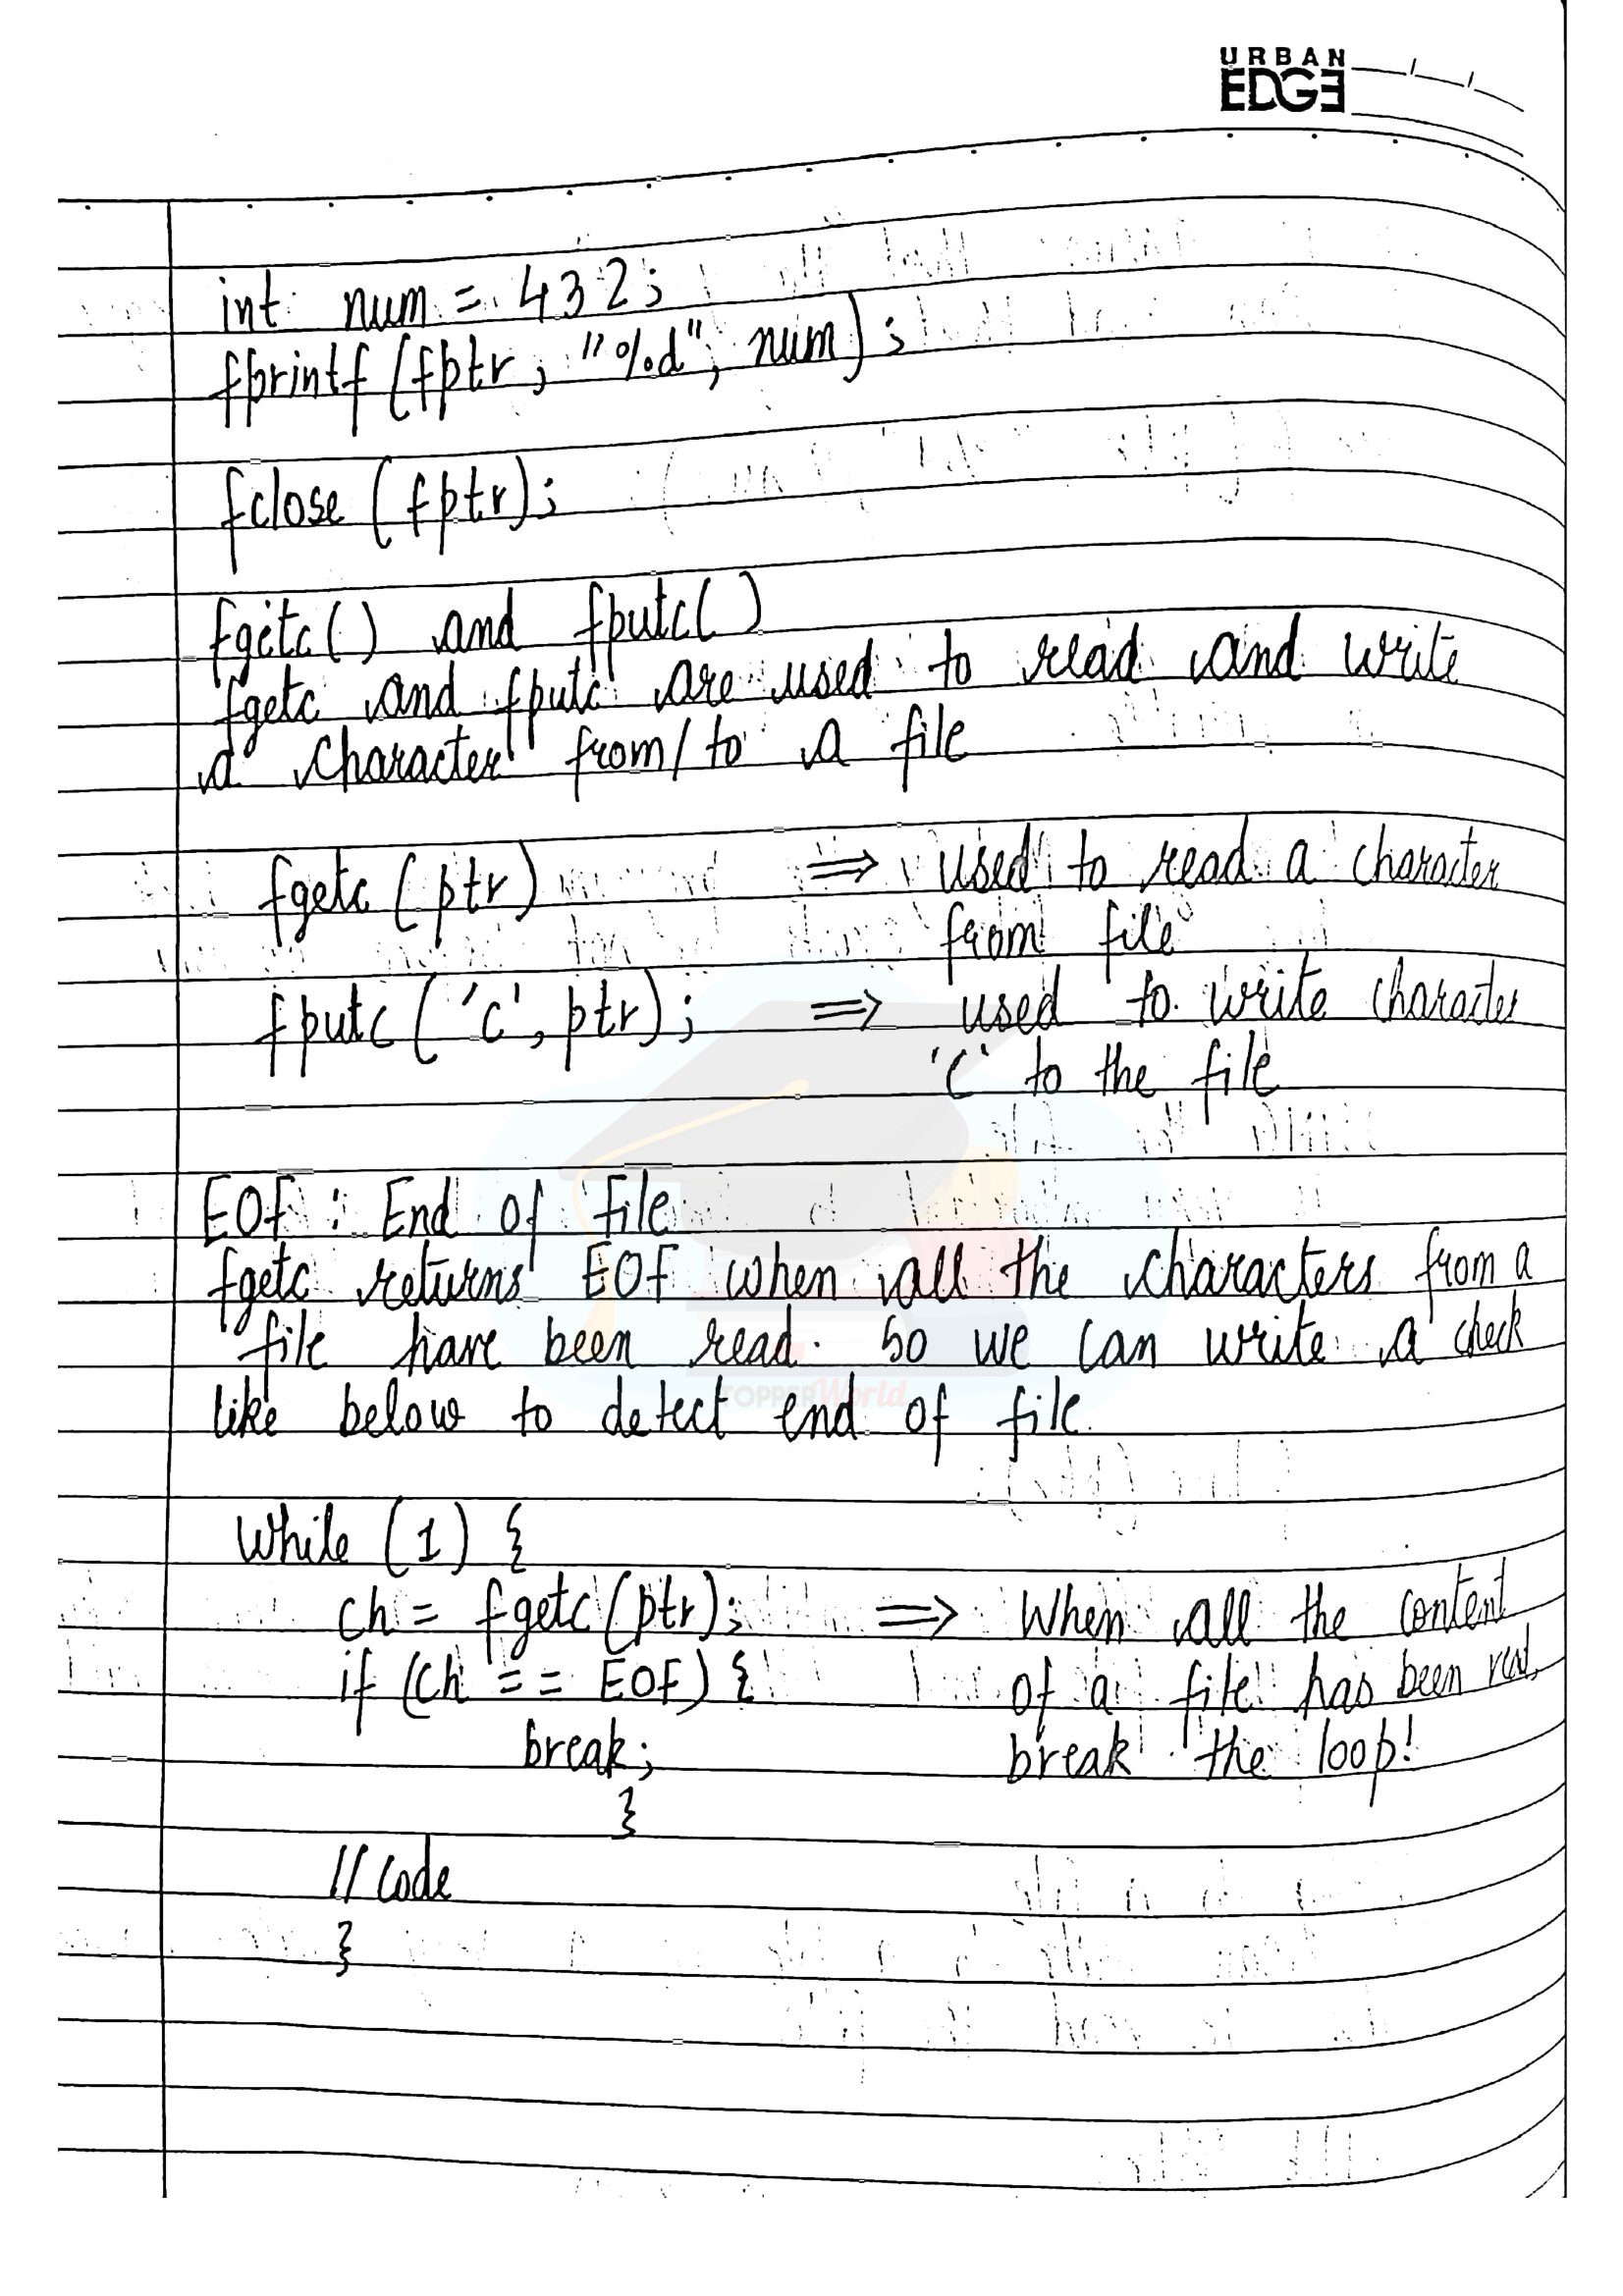 URBAN
EDGE
int num = 432;
fprintf (fptr, "%d", num);
fclose (fptr);
fgetc() and fputc()
fgetc and fputc are used to read and write
a character from/to a file
fgetc (ptr) ⇒ used to read a character
from file
fputc ('c', ptr); ⇒ used to write character
'c' to the file
EOF : End of File
fgetc returns EOF when all the characters from a
file have been read. So we can write a check
like below to detect end of file
TOPPERWorld
While (1) {
ch = fgetc (ptr); ⇒ When all the content
if (ch == EOF) { of a file has been read,
break; break the loop!
}
// Code
}